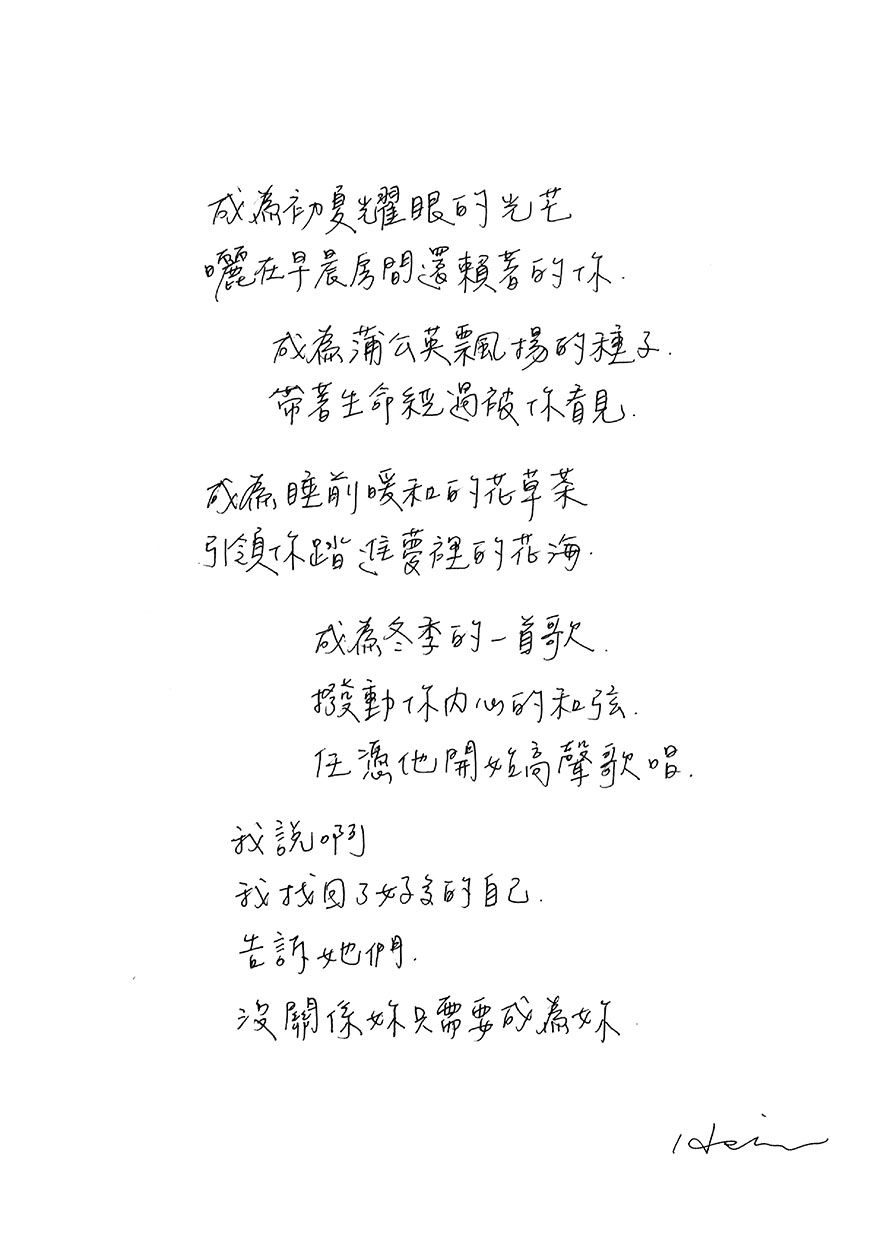 成為初夏耀眼的光芒
曬在早晨房間還賴著的你.
成為蒲公英飄揚的種子.
帶著生命經過被你看見.
成為睡前暖和的花草茶
引領你踏進夢裡的花海.
成為冬季的一首歌.
撥動你內心的和弦.
任憑他開始高聲歌唱.
我說啊
我找回了好多的自己.
告訴她們.
沒關係妳只需要成為妳.
Hsin